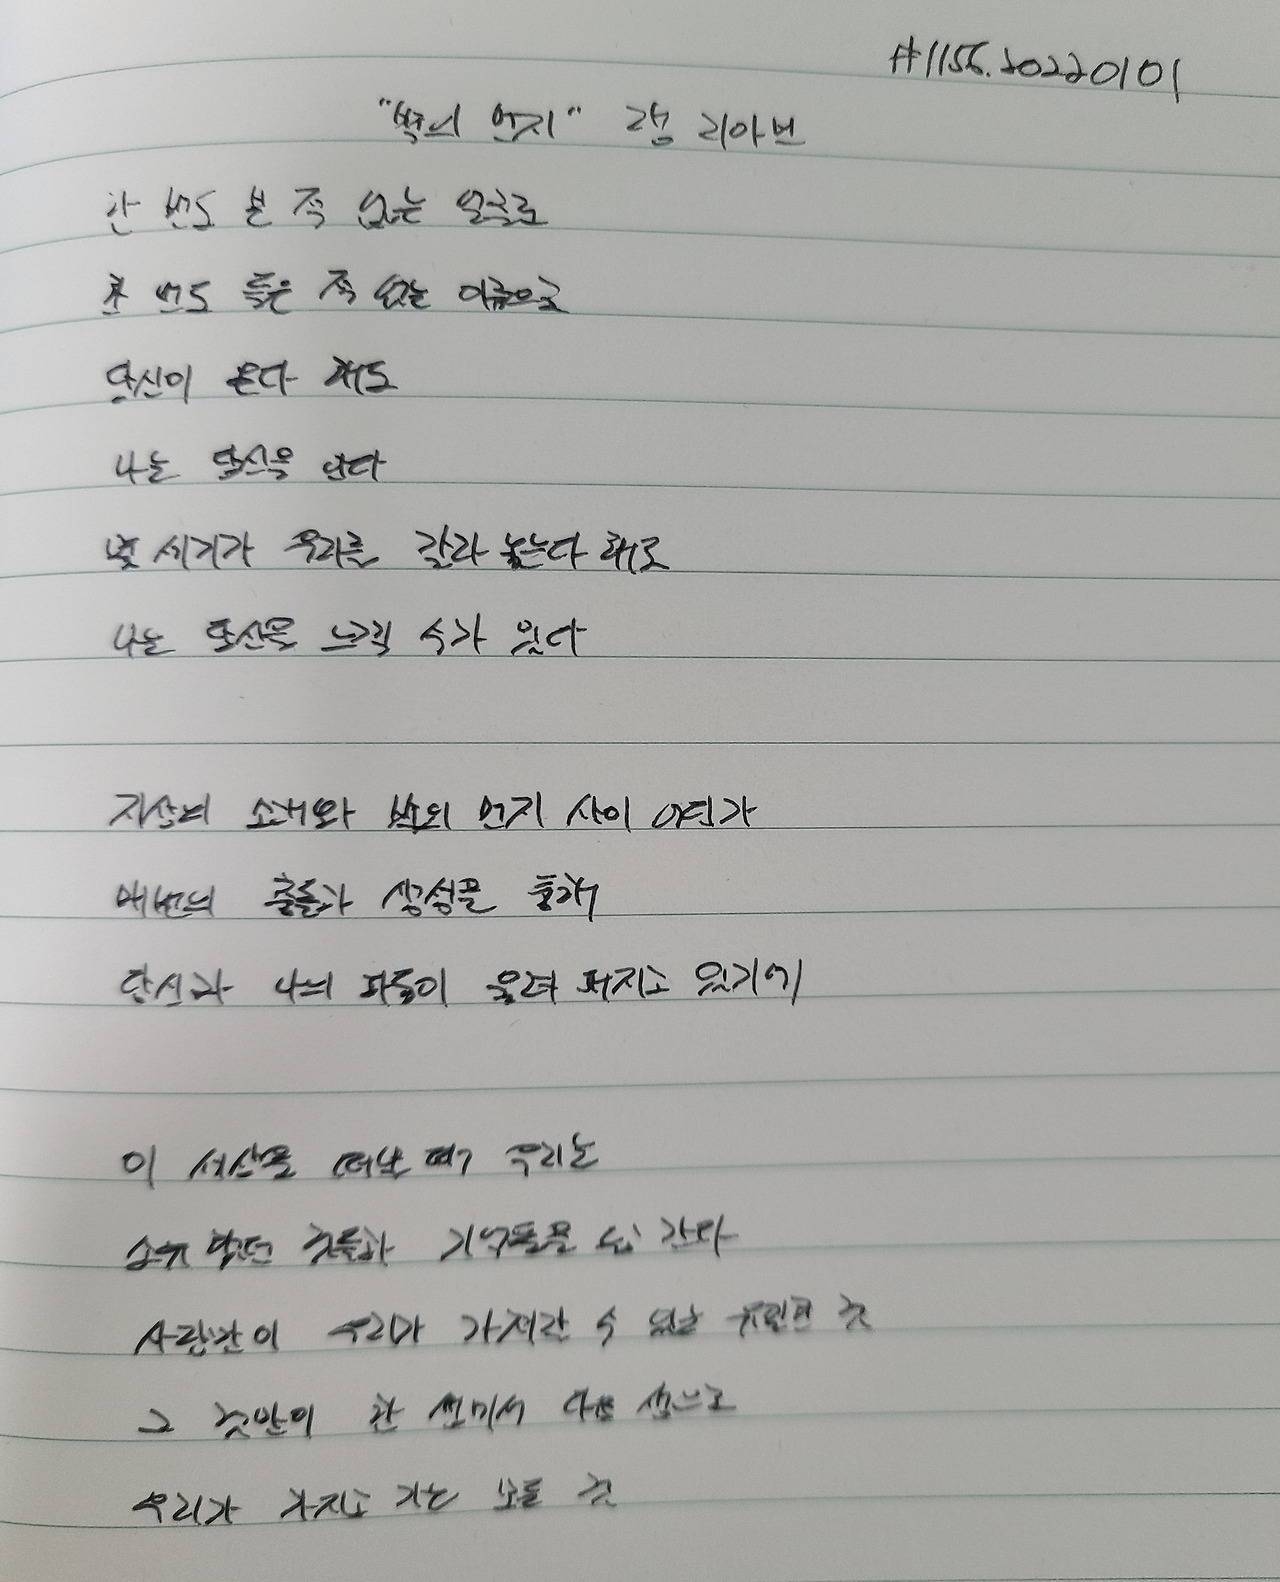 #1156. 20220101
"별의 먼지" 랭 리아브
한 번도 본 적 없는 얼굴로
한 번도 들은 적 없는 이름으로
당신이 온다 해도
나는 당신을 안다
몇 세기가 우리를 갈라 놓는다 해도
나는 당신을 느낄 수가 있다
지상의 모래와 별의 먼지 사이 어딘가
매번의 충돌과 생성을 통해
당신과 나의 파동이 울려 퍼지고 있기에
이 세상을 떠날 때 우리는
소유 했던 것들과 기억들을 두고 간다
사랑만이 우리가 가져갈 수 있는 유일한 것
그 것만이 한 생에서 다음 생으로
우리가 가지고 가는 모든 것